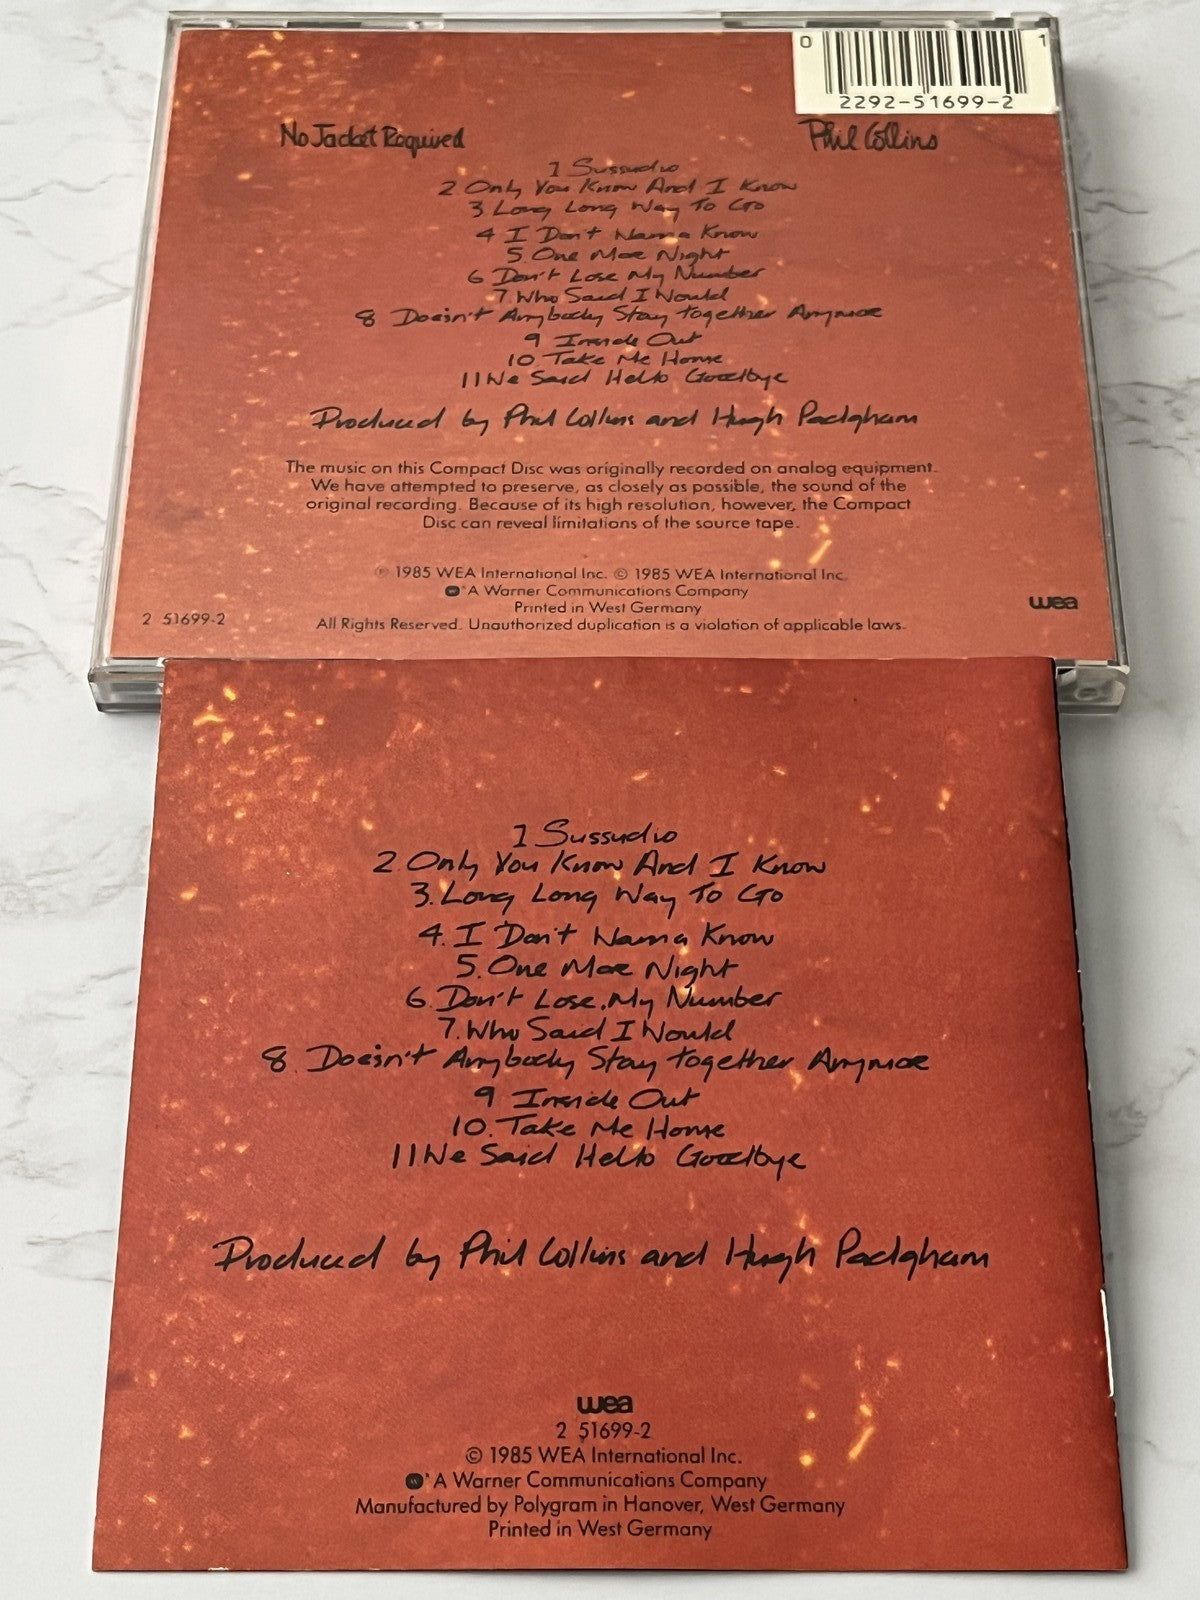 0 1
2292-51699-2
No Jacket Required Phil Collins
1 Sussudio
2 Only You Know And I Know
3 Long Long Way To Go
4 I Don't Wanna Know
5. One More Night
6 Don't Lose My Number
7 Who Said I Would
8 Doesn't Anybody Stay Together Anymore
9 Inside Out
10 Take Me Home
11 We Said Hello Goodbye
Produced by Phil Collins and Hugh Padgham
The music on this Compact Disc was originally recorded on analog equipment.
We have attempted to preserve, as closely as possible, the sound of the
original recording. Because of its high resolution, however, the Compact
Disc can reveal limitations of the source tape.
℗ 1985 WEA International Inc. © 1985 WEA International Inc.
A Warner Communications Company
Printed in West Germany
2 51699-2 All Rights Reserved. Unauthorized duplication is a violation of applicable laws.
wea
1 Sussudio
2. Only You Know And I Know
3. Long Long Way To Go
4. I Don't Wanna Know
5. One More Night
6. Don't Lose My Number
7. Who Said I Would
8. Doesn't Anybody Stay Together Anymore
9 Inside Out
10. Take Me Home
11 We Said Hello Goodbye
Produced by Phil Collins and Hugh Padgham
wea
2 51699-2
© 1985 WEA International Inc.
A Warner Communications Company
Manufactured by Polygram in Hanover, West Germany
Printed in West Germany